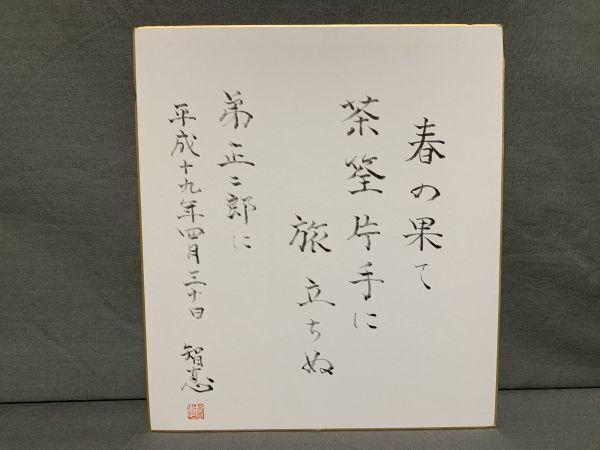 春の果て
茶筌片手に
旅立ちぬ
弟正二郎に
平成十九年四月三十日
智恵